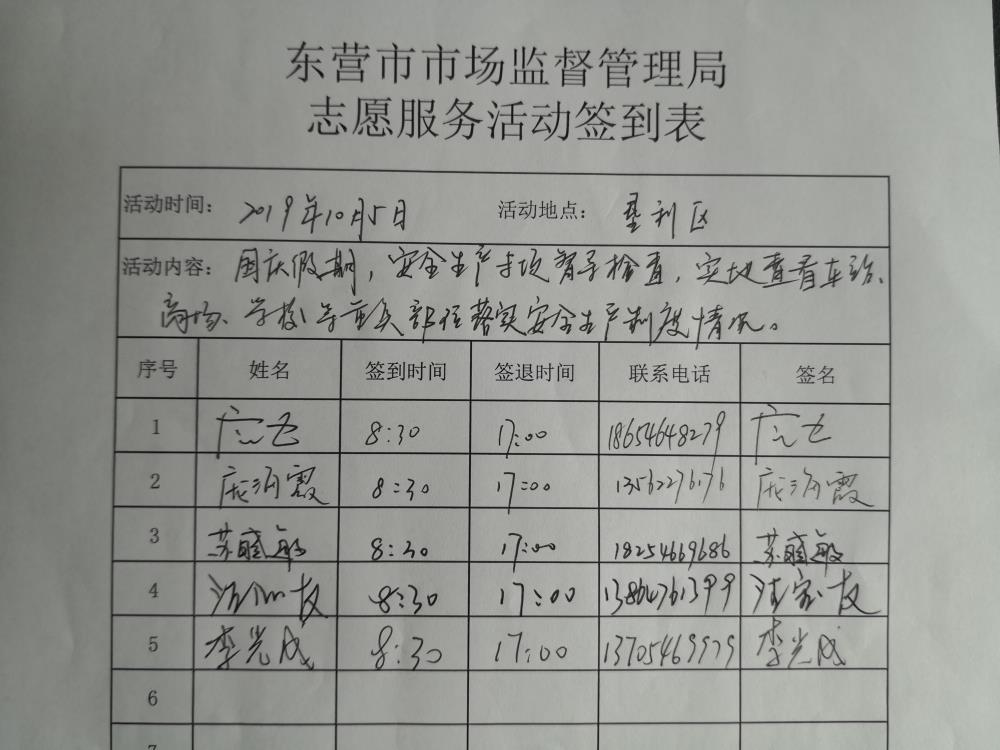 东营市市场监督管理局
志愿服务活动签到表
活动时间： 2019年10月5日 活动地点： 垦利区
活动内容： 国庆假期，安全生产专项督导检查，实地查看车站、
商场、学校等重点部位落实安全生产制度情况。
序号 姓名 签到时间 签退时间 联系电话 签名
1 8:30 17:00 18654648279
2 庞海霞 8:30 17:00 13562276176 庞海霞
3 苏晓敏 8:30 17:00 18254669686 苏晓敏
4 8:30 17:00 13864761399
5 李光成 8:30 17:00 13705469979 李光成
6
7